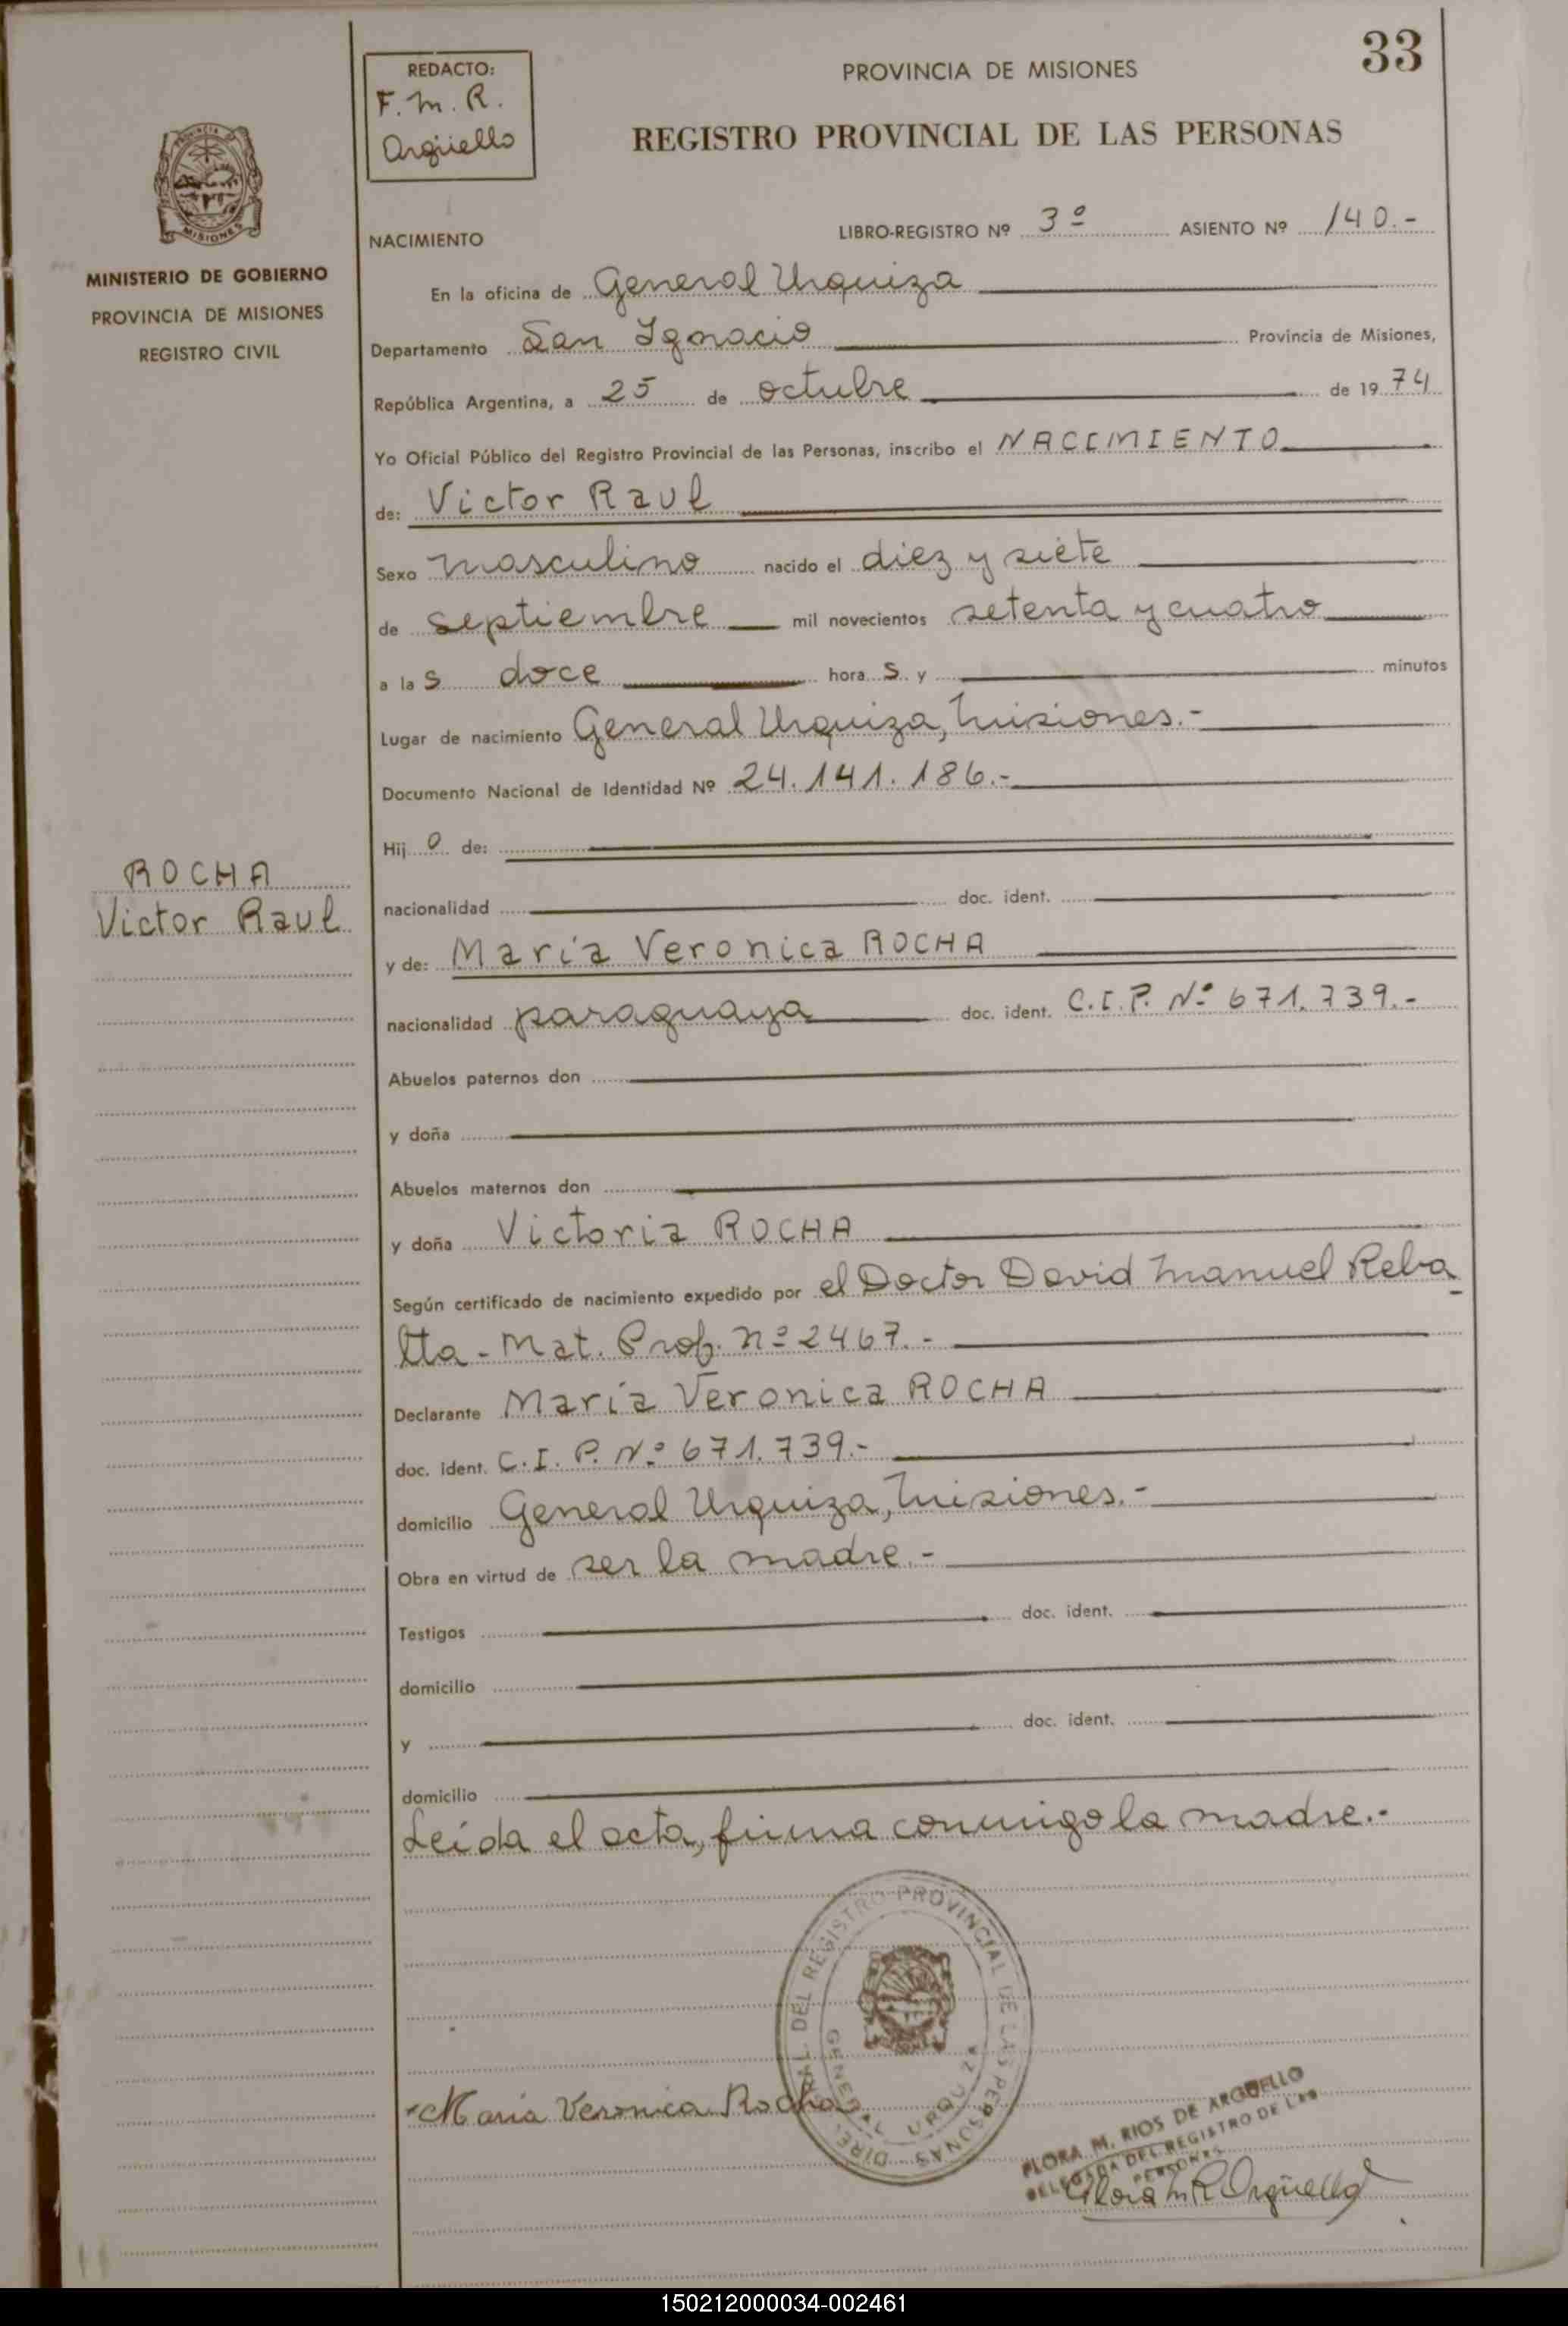 33
REDACTO:
F. M. R.
Argüello
PROVINCIA DE MISIONES
REGISTRO PROVINCIAL DE LAS PERSONAS
MISIONES
MINISTERIO DE GOBIERNO
PROVINCIA DE MISIONES
REGISTRO CIVIL
NACIMIENTO LIBRO-REGISTRO Nº 3º ASIENTO Nº 140.-
En la oficina de General Urquiza
Departamento San Ignacio Provincia de Misiones,
República Argentina, a 25 de octubre de 1974
Yo Oficial Público del Registro Provincial de las Personas, inscribo el NACIMIENTO
de: Victor Raul
Sexo masculino nacido el diez y siete
de septiembre mil novecientos setenta y cuatro
a las doce horas y minutos
Lugar de nacimiento General Urquiza, Misiones.-
Documento Nacional de Identidad Nº 24.141.186.-
Hijo de:
ROCHA
Victor Raul
nacionalidad doc. ident.
y de: María Veronica ROCHA
nacionalidad paraguaya doc. ident. C.I.P. Nº 671.739.-
Abuelos paternos don
y doña
Abuelos maternos don
y doña Victoria ROCHA
Según certificado de nacimiento expedido por el Doctor David Manuel Reba
tta - Mat. Prof. nº 2467.-
Declarante María Veronica ROCHA
doc. ident. C.I.P. Nº 671.739.-
domicilio General Urquiza, Misiones.-
Obra en virtud de ser la madre.-
Testigos doc. ident.
domicilio
y doc. ident.
domicilio
Leída el acta, firma conmigo la madre.-
DEL REGISTRO PROVINCIAL DE LAS PERSONAS
GENERAL URQUIZA
Maria Veronica Rocha
FLORA M. RIOS DE ARGÜELLO
DELEGADA DEL REGISTRO DE LAS
PERSONAS
Flora M R Argüello
150212000034-002461